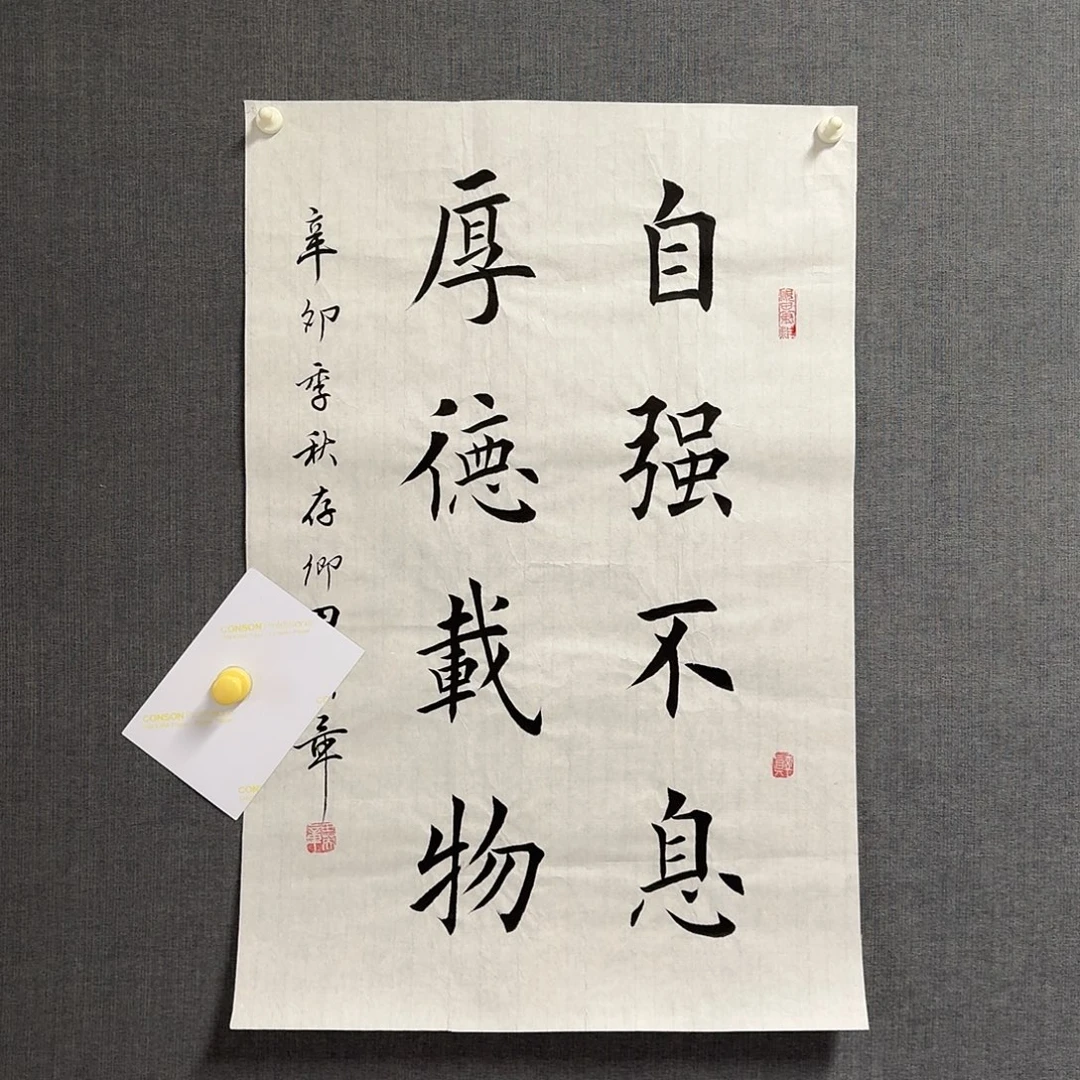 自强不息
厚德載物
辛卯季秋存卿田章
CONSON
CONSON
CON